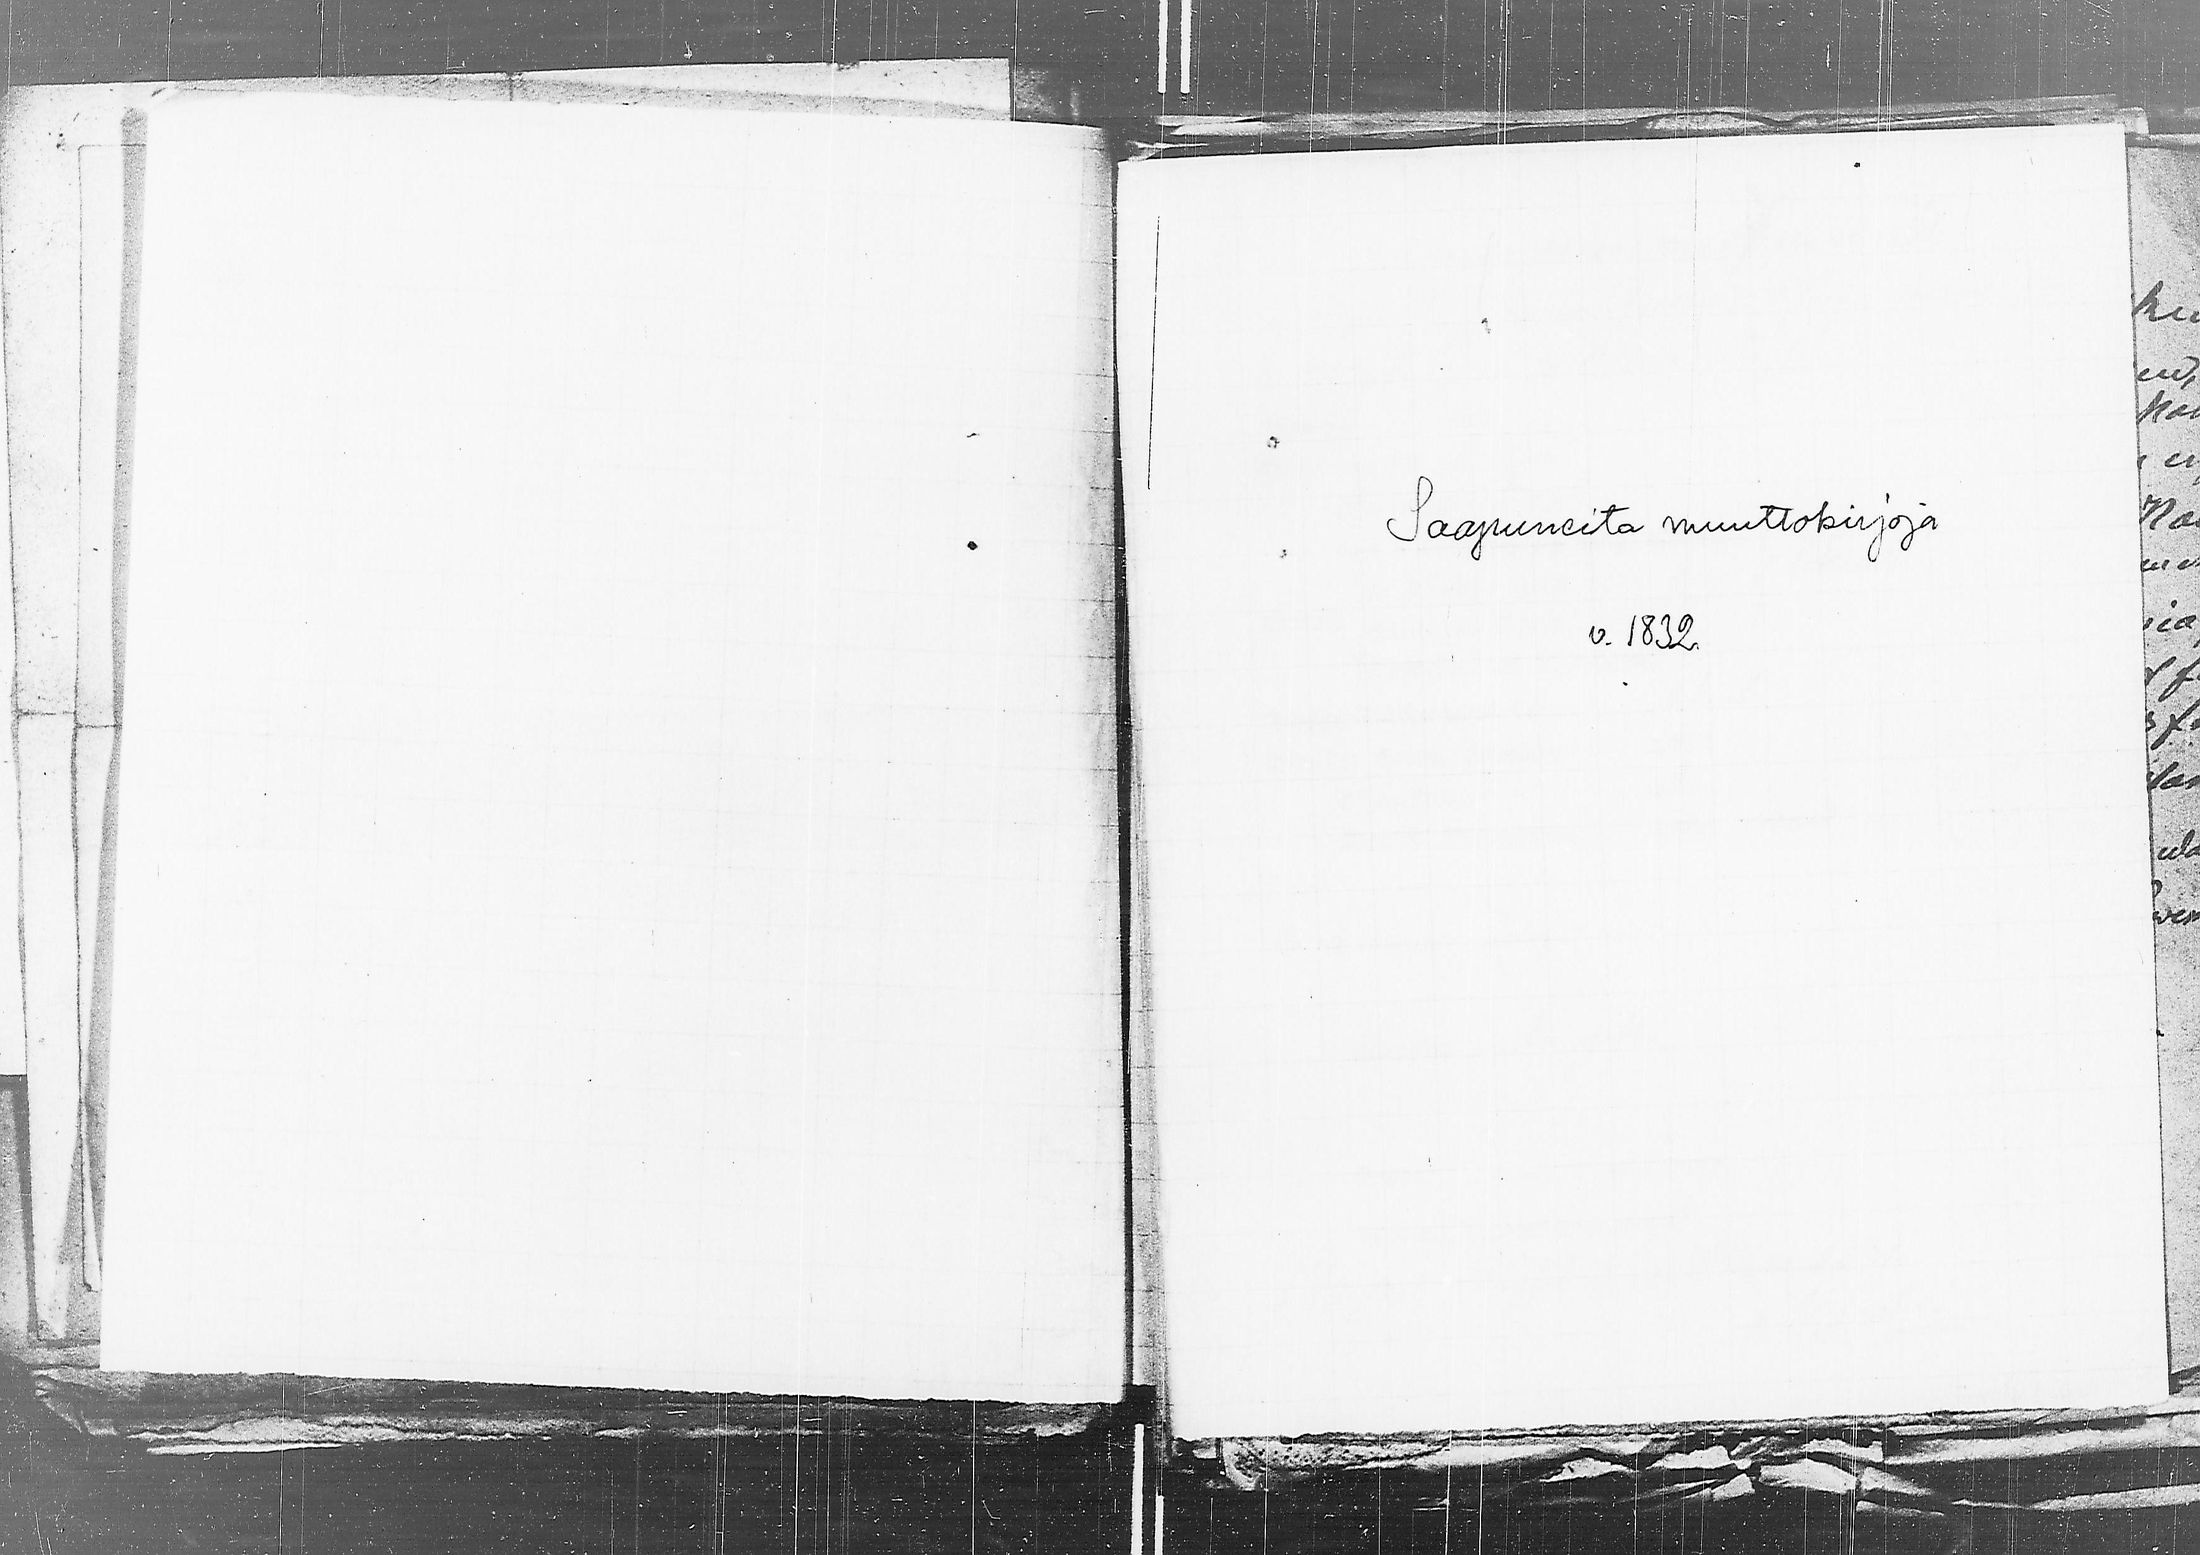 Saapuneita muuttokirjoja
v. 1832.